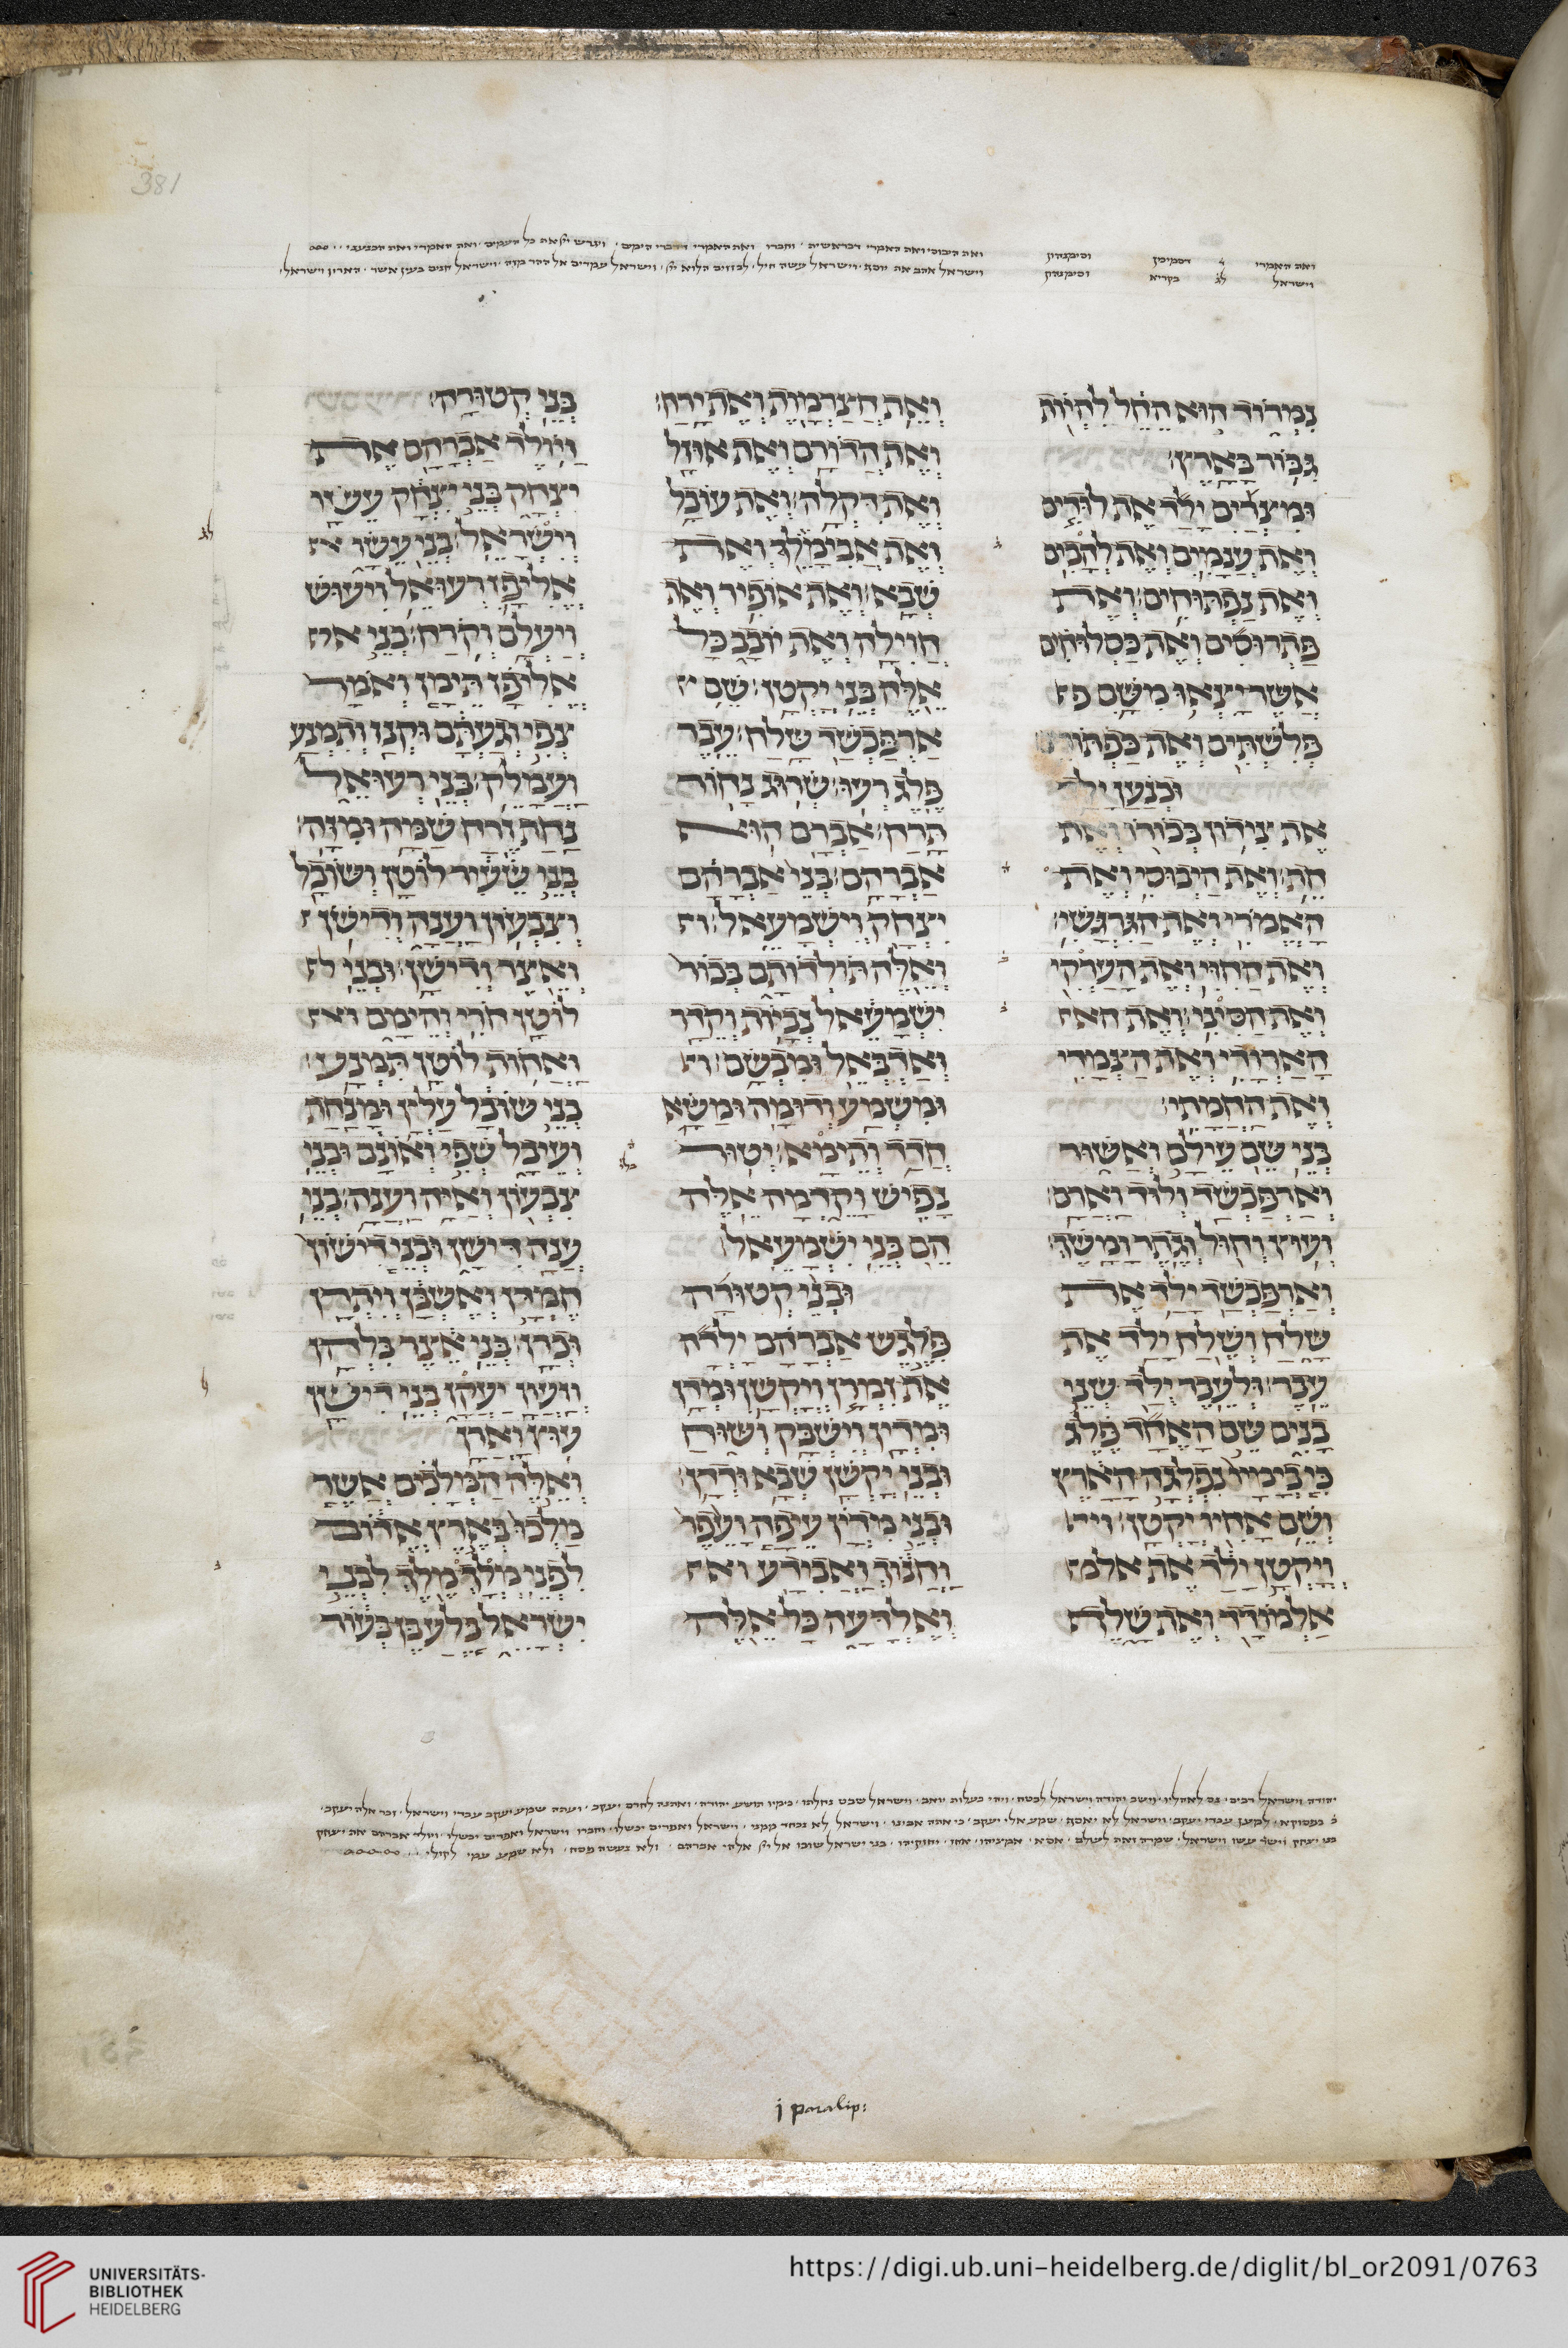 ואת האמרי ד דסמיכין וסימנהון ואת היבוסי ואת האמרי דבראשית וחברו ואת האמרי דדברי הימים ויגרש יי את כל העמים ואת האמרי ואת הכנעני
וישראל לג בקריא וסימנהון וישראל אהב את יוסף וישראל עשה חיל לבוזזים הלוא יי וישראל עמדים אל ההר מזה וישראל חנים בעין אשר הארון וישראל
נמרוד הוא החל להיות
גבור בארץ׃
ומצרים ילד את לודים
ואת ענמים ואת להבים
ואת נפתוחים׃ ואת
פתרוסים ואת כסלוחים
אשר יצאו משם פ
פלשתים ואת כפתורים׃
וכנען ילד
את צידון בכורו ואת
חת׃ ואת היבוסי ואת
האמרי ואת הגרגשי׃
ואת החוי ואת הערקי
ואת הסיני׃ ואת הא
הארודי ואת הצמרי
ואת החמתי׃
בני שם עילם ואשור
וארפכשד ולוד וארם
ועוץ וחול וגתר ומשך׃
וארפכשד ילד את
שלח ושלח ילד את
עבר׃ ולעבר ילד שני
בנים שם האחד פלג
כי בימיו נפלגה הארץ
ושם אחיו יקטן׃ וי
ויקטן ילד את אלמ
אלמודד ואת שלף
ואת חצרמות ואת ירח׃
ואת הדורם ואת אוזל
ואת דקלה׃ ואת עובל
ואת אבימאל ואת
שבא׃ ואת אופיר ואת
חוילה ואת יובב כל
אלה בני יקטן׃ שם
ארפכשד שלח׃ עבר
פלג רעו׃ שרוג נחור
תרח׃ אברם הוא
אברהם׃ בני אברהם
יצחק וישמעאל׃ ו
ואלה תולדותם בכור
ישמעאל נביות וקדר
ואדבאל ומבשם׃ ו
ומשמע ודומה ומשא
חדד ותימא׃ יטור
נפיש וקדמה אלה
הם בני ישמעאל׃
ובני קטורה
פלגש אברהם ילדה
את זמרן ויקשן ומדן
ומדין וישבק ושוח
ובני יקשן שבא ודדן׃
ובני מדין עיפה ועפר
וחנוך ואבידע וא
ואלדעה כל אלה
בני קטורה׃
ויולד אברהם את
יצחק בני יצחק עשו
וישראל׃ בני עשו א
אליפז רעואל ויעוש
ויעלם וקרח׃ בני א
אליפז תימן ואומר
צפי וגעתם וקנז ותמנע
ועמלק׃ בני רעואל
נחת זרח שמה ומזה׃
בני שעיר לוטן ושובל
וצבעון וענה ודישן
ואצר ודישן׃ ובני ל
לוטן חרי והומם וא
ואחות לוטן תמנע׃
בני שובל עלין ומנחת
ועיבל שפי ואונם ובני
צבעון ואיה וענה׃ בני
ענה דישן ובני דישון
חמרן ואשבן ויתרן
וכרן׃ בני אצר בלהן
וזעון יעקן בני דישן
עוץ וארן׃
ואלה המלכים אשר
מלכו בארץ אדום
לפני מלך מלך לבני
ישראל בלע בן בעור
i paralip:
381
UNIVERSITÄTS-
BIBLIOTHEK
HEIDELBERG
https://digi.ub.uni-heidelberg.de/diglit/bl_or2091/0763